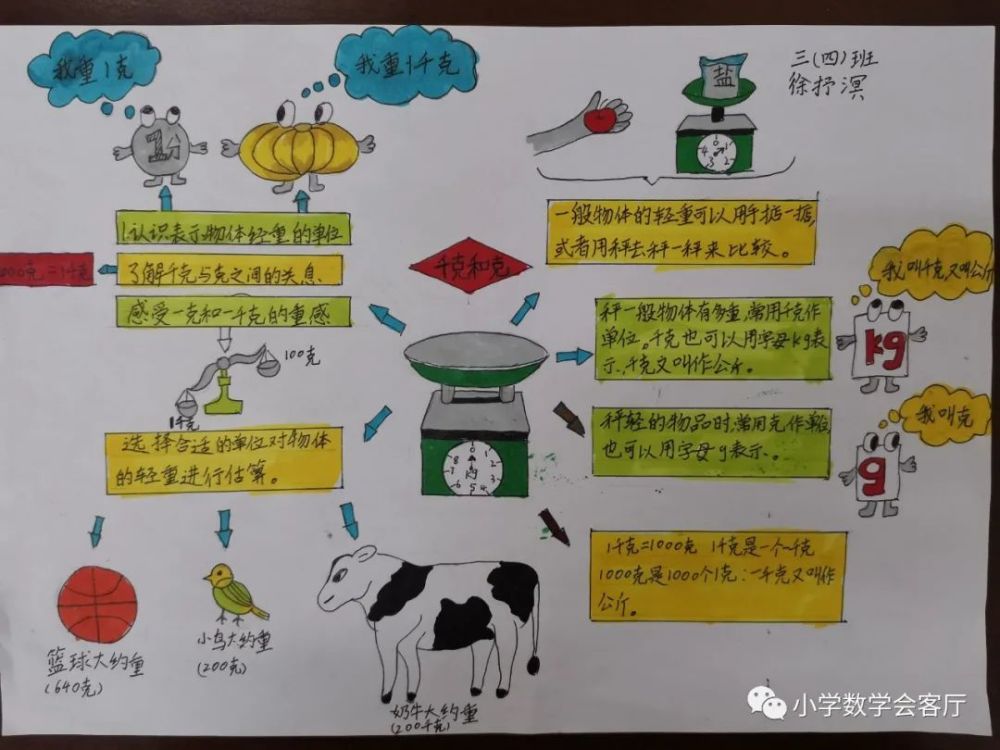 我重1克
我重1千克
盐
三(四)班
徐抒溟
1分
1.认识表示物体轻重的单位
了解千克与克之间的关息
000克=1千克
感受一克和一千克的重感
100克
1千克
选择合适的单位对物体
的轻重进行估算。
千克和克
一般物体的轻重可以用手掂一掂,
或者用秤去秤一秤来比较。
秤一般物体有多重,常用千克作
单位。千克也可以用字母kg表
示,千克又叫作公斤。
我叫千克又叫公斤
kg
秤轻的物品时,常用克作单位
也可以用字母g表示。
我叫克
g
1千克=1000克 1千克是一个一千克
1000克是1000个1克:一千克又叫作
公斤。
篮球大约重
(640克)
小鸟大约重
(200克)
奶牛大约重
(200千克)
小学数学会客厅